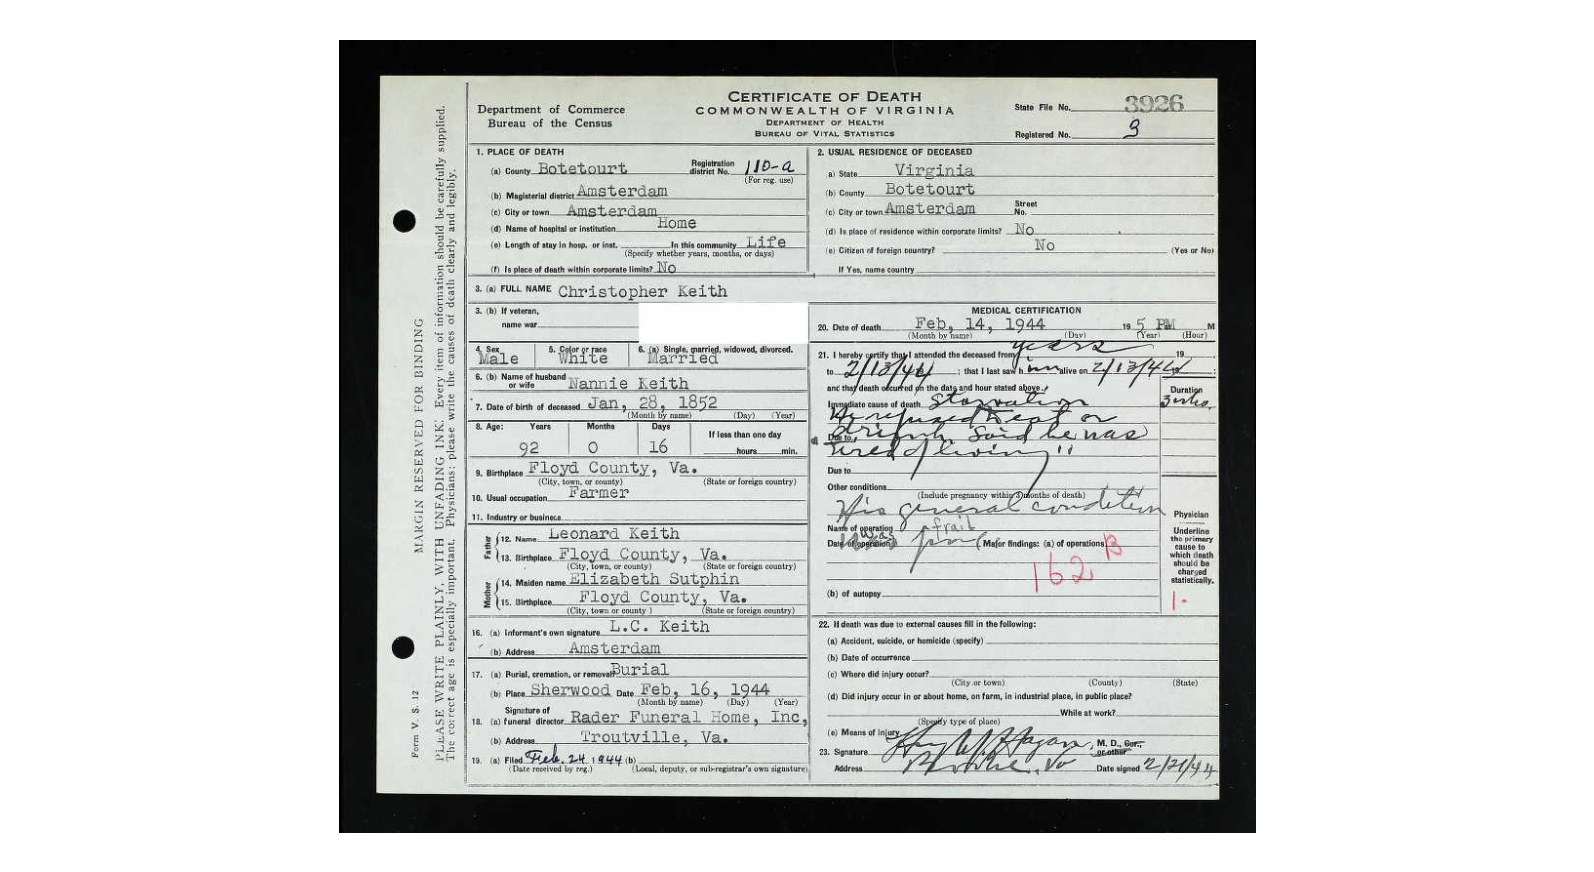 CERTIFICATE OF DEATH
COMMONWEALTH OF VIRGINIA
DEPARTMENT OF HEALTH
BUREAU OF VITAL STATISTICS
Department of Commerce
Bureau of the Census
State File No. 3926
Registered No. 3
1. PLACE OF DEATH
(a) County Botetourt Registration district No. 110-a
(For reg. use)
(b) Magisterial district Amsterdam
(c) City or town Amsterdam
(d) Name of hospital or institution Home
(e) Length of stay in hosp. or inst. In this community Life
(Specify whether years, months, or days)
(f) Is place of death within corporate limits? No
2. USUAL RESIDENCE OF DECEASED
a) State Virginia
(b) County Botetourt
(c) City or town Amsterdam Street No.
(d) Is place of residence within corporate limits? No
(e) Citizen of foreign country? No (Yes or No)
If Yes, name country
3. (a) FULL NAME Christopher Keith
3. (b) If veteran,
name war
4. Sex Male
5. Color or race White
6. (a) Single, married, widowed, divorced. Married
6. (b) Name of husband or wife Nannie Keith
7. Date of birth of deceased Jan, 28, 1852
(Month by name) (Day) (Year)
8. Age: Years Months Days If less than one day
92 0 16 hours min.
9. Birthplace Floyd County, Va.
(City, town, or county) (State or foreign country)
10. Usual occupation Farmer
11. Industry or business
Father
12. Name Leonard Keith
13. Birthplace Floyd County, Va.
(City, town, or county) (State or foreign country)
Mother
14. Maiden name Elizabeth Sutphin
15. Birthplace Floyd County, Va.
(City, town or county) (State or foreign country)
16. (a) Informant's own signature L.C. Keith
(b) Address Amsterdam
17. (a) Burial, cremation, or removal Burial
(b) Place Sherwood Date Feb, 16, 1944
(Month by name) (Day) (Year)
18. Signature of
(a) funeral director Rader Funeral Home, Inc,
(b) Address Troutville, Va.
19. (a) Filed Feb. 24 1944 (b)
(Date received by reg.) (Local, deputy, or sub-registrar's own signature)
MEDICAL CERTIFICATION
20. Date of death Feb, 14, 1944 19 5 PM M
(Month by name) (Day) (Year) (Hour)
21. I hereby certify that I attended the deceased from years 19
to 2/13/44; that I last saw him alive on 2/13/44;
and that death occurred on the date and hour stated above.
Duration
Immediate cause of death Starvation 3 wks.
He refused to eat or
Due to drink. Said he was
tired of living"
Due to
Other conditions
(Include pregnancy within 3 months of death)
His general condition
Name of operation was frail
Date of operation (Major findings: (a) of operations
162 B
(b) of autopsy
Physician
Underline the primary cause to which death should be charged statistically.
1.
22. If death was due to external causes fill in the following:
(a) Accident, suicide, or homicide (specify)
(b) Date of occurrence
(c) Where did injury occur?
(City or town) (County) (State)
(d) Did injury occur in or about home, on farm, in industrial place, in public place?
While at work?
(Specify type of place)
(e) Means of injury
23. Signature M. D., Cor., or other
Address Va Date signed 2/21/44
Form V. S. 12
MARGIN RESERVED FOR BINDING
PLEASE WRITE PLAINLY, WITH UNFADING INK. Every item of information should be carefully supplied.
The correct age is especially important. Physicians: please write the causes of death clearly and legibly.